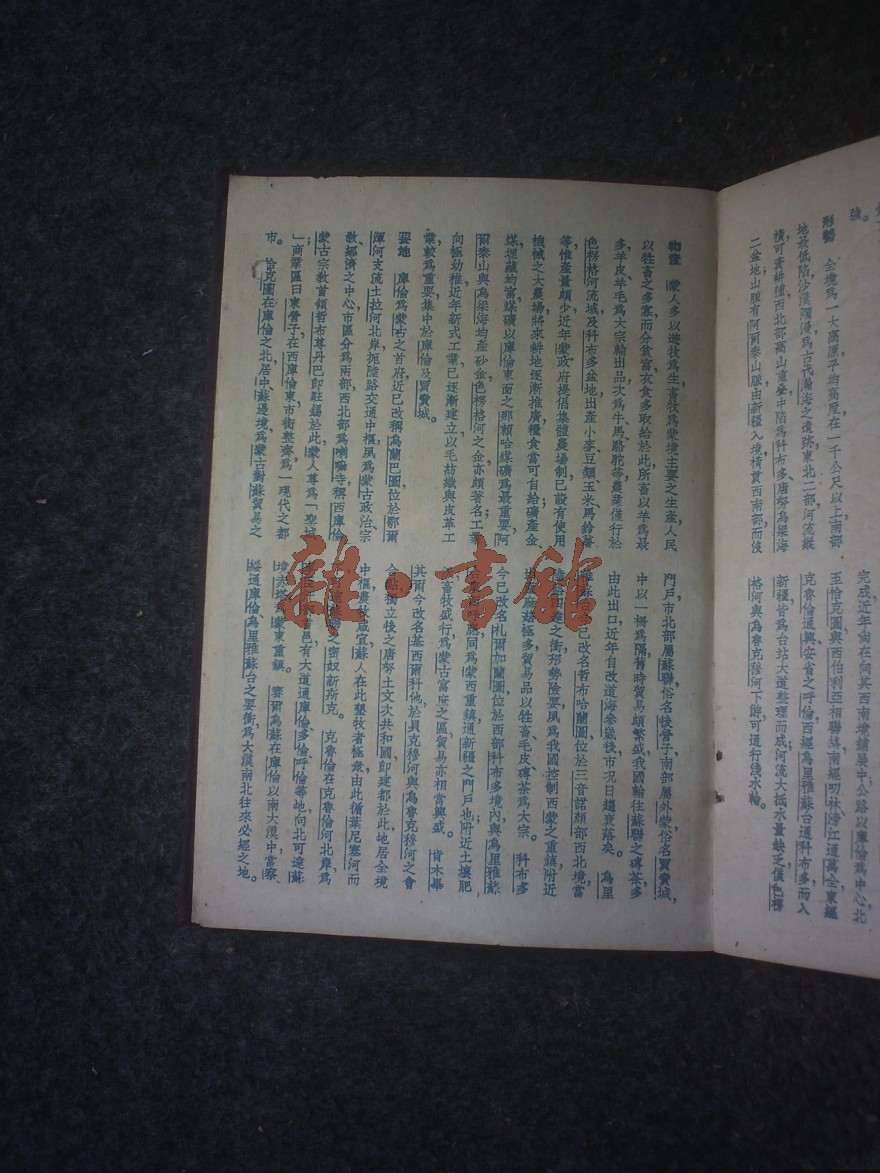 強。
形勢　全境爲一大高原，平均高度在一千公尺以上，南部
地最低陷，沙漠瀰漫，爲古代瀚海之遺跡，東北二部，河流縱
橫，可資耕種，西北部高山重疊，中陷爲科布多、唐努烏梁海
二盆地，山脈有阿爾泰山脈，由新疆入境，橫貫西南部，而後
完成，近年尙在向其西南境鋪展中，公路以庫倫爲中心，北
至恰克圖，與西伯利亞相聯絡，南經叨林、滂江通萬全，東經
克魯倫通興安省之呼倫，西經烏里雅蘇台通科布多，而入
新疆，皆爲台站大道整理而成，河流大抵水量缺乏，僅色楞
格河與烏魯克穆河下游，可通行淺水輪。
物產　蒙人多以遊牧爲生，畜牧爲蒙境主要之生產，人民
以牲畜之多寡而分貧富，衣食多取給於此，所畜以羊爲最
多，羊皮羊毛爲大宗輸出品，次爲牛馬駱駝等，農業僅行於
色楞格河流域及科布多盆地，出產小麥、豆類、玉米、馬鈴薯
等，惟產量頗少，近年蒙政府提倡集體農場制，已設有使用
機械之大農場，將來耕地逐漸推廣，糧食當可自給，礦產金
煤埋藏均富，煤礦以庫倫東面之那賴哈煤礦爲最重要，阿
爾泰山與烏梁海均產砂金，色楞格河之金亦頗著名，工業
向極幼稚，近年新式工業已逐漸建立，以毛紡織與皮革工
業較爲重要，集中於庫倫及買賣城。
要地　庫倫爲蒙古之首府，近已改稱烏蘭巴圖，位於鄂爾
渾河支流土拉河北岸，扼陸路交通中樞，夙爲蒙古政治、宗
教、經濟之中心，市區分爲兩部，西北部爲喇嘛寺，稱西庫倫，
蒙古宗教首領哲布尊丹巴卽駐錫於此，蒙人尊爲「聖城
」；商業區曰東營子，在西庫倫東，市街整齊，爲一現代之都
市。　恰克圖在庫倫之北，居中蘇邊境，爲蒙古對蘇貿易之
門戶，市北部屬蘇聯，俗名後營子，南部屬外蒙，俗名買賣城，
中以一柵爲隔，舊時貿易頗繁盛，我國輸往蘇聯之磚茶，多
由此出口，近年自改道海參崴後，市況日趨衰落矣。　烏里
雅蘇台已改名哲布哈蘭圖，位於三音諾顏部西北境，當
之衝，形勢險要，夙爲我國控制西蒙之重鎭，附近
極多，貿易品以牲畜、毛皮、磚茶爲大宗。　科布多
今已改名札爾加蘭圖，位於西部科布多境內，與烏里雅蘇
同爲蒙西重鎭，通新疆之門戶也，附近土壤肥
畜牧盛行，爲蒙古富庶之區，貿易亦相當興盛。　肯木畢
其爾今改名基西爾科他，於貝克穆河與烏魯克穆河之會
合點，獨立後之唐努土文次共和國，卽建都於此，地居全境
中樞，農牧咸宜，蘇人在此墾牧者極衆，由此循葉尼塞河而
密奴新斯克。　克魯倫在克魯倫河北岸，爲
邑，有大道通庫倫、多倫、呼倫等地，向北可達蘇
境赤塔，爲蒙東重鎭。　賽爾烏蘇在庫倫以南大漠中，當察、
綏通庫倫、烏里雅蘇台之要衝，爲大漠南北往來必經之地。
雜·書館